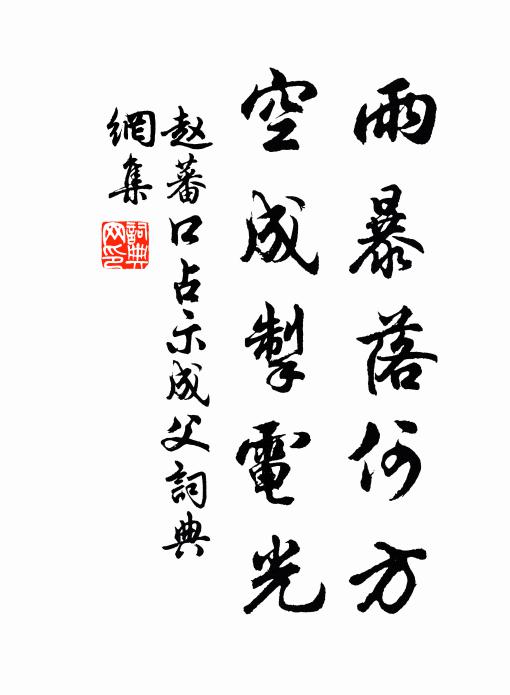 雨暴落何方
空成掣電光
赵蕃口占示成父詞典
網集
詞典網印